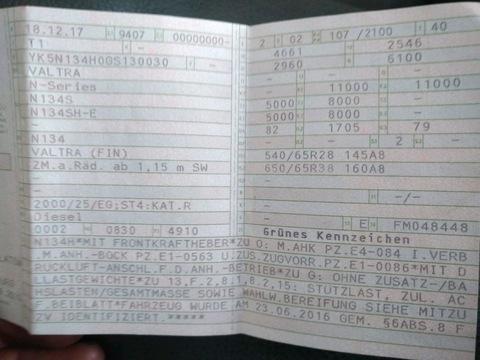 18.12.17 9407 00000000-
T1 -
YK5N134H0GS130030 -
VALTRA
N-Series
N134S
N134SH-E
-
N134
VALTRA (FIN)
ZM.a.Räd. ab 1,15 m SW
-
-
2000/25/EG;ST4:KAT.R
Diesel
0002 0830 4910
2 02 107 /2100 40
4661 2546
2960 6100
- - -
- 11000 11000
5000 8000 -
5000 8000 -
82 1705 79
- - 2 -
540/65R28 145A8
650/65R38 160A8
-
- -/-
- E FM048448
Grünes Kennzeichen
N134H*MIT FRONTKRAFTHEBER*ZU O: M.AHK PZ.E4-084 I.VERB
.M.ANH.-BOCK PZ.E1-0563 U.ZUS.ZUGVORR.PZ.E1-0086*MIT D
RUCKLUFT-ANSCHL.F.D.ANH-BETRIEB*ZU G: OHNE ZUSATZ-/BA
LLASTGEWICHTE*ZU 13,F.2,8.1,8.2,15: STÜTZLAST, ZUL. AC
HSLASTEN/GESAMTMASSE SOWIE WAHLW.BEREIFUNG SIEHE MITZU
F.BEIBLATT*FAHRZEUG WURDE AM 23.06.2016 GEM. §6ABS.8 F
ZV IDENTIFIZIERT.*****